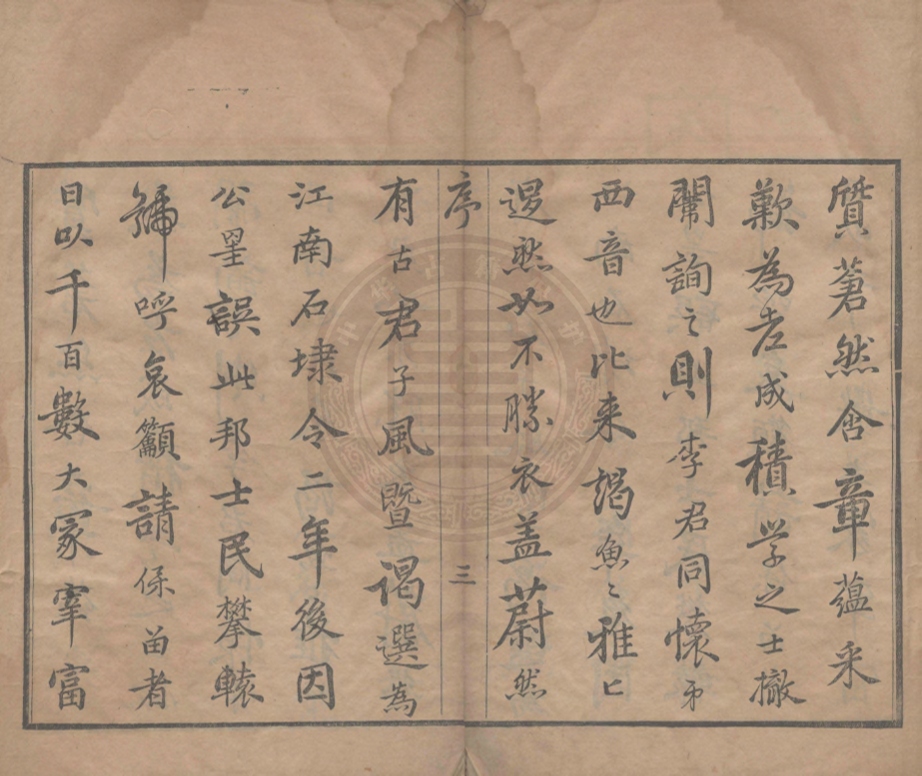 質蒼然含章蘊采
歎為老成積學之士撤
闈詢之則李君同懷弟
西音也比来謁魚〻雅〻
逡然如不勝衣蓋蔚然
序
三
有古君子風暨谒選為
江南石埭令二年後因
公罣誤此邦士民攀轅
號呼哀籲請保留者
日以千百數大冢宰富